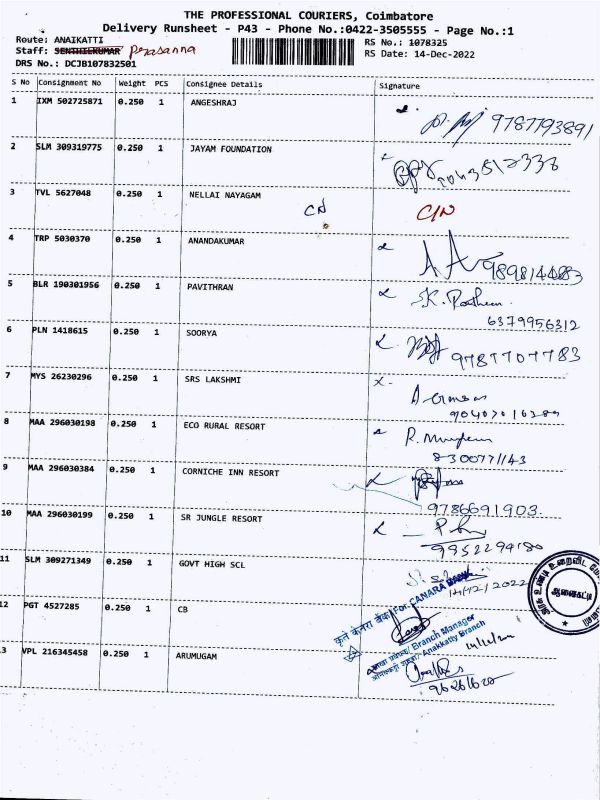 THE PROFESSIONAL COURIERS, Coimbatore
Delivery Runsheet - P43 - Phone No.:0422-3505555 - Page No.:1
Route: ANAIKATTI
RS No.: 1078325
Staff: SENTHILKUMAR Prasanna
RS Date: 14-Dec-2022
DRS No.: DCJB107832501
S No Consignment No Weight PCS Consignee Details Signature
1 IXM 502725871 0.250 1 ANGESHRAJ
9787793891
2 SLM 309319775 0.250 1 JAYAM FOUNDATION
3 TVL 5627048 0.250 1 NELLAI NAYAGAM
CN C/N
4 TRP 5030370 0.250 1 ANANDAKUMAR
5 BLR 190301956 0.250 1 PAVITHRAN
6379956312
6 PLN 1418615 0.250 1 SOORYA
9787707783
7 MYS 26230296 0.250 1 SRS LAKSHMI
8 MAA 296030198 0.250 1 ECO RURAL RESORT
8300771143
9 MAA 296030384 0.250 1 CORNICHE INN RESORT
9786691903
10 MAA 296030199 0.250 1 SR JUNGLE RESORT
9952294180
11 SLM 309271349 0.250 1 GOVT HIGH SCL
14/12/2022
ஆனைகட்டி
12 PGT 4527285 0.250 1 CB
कृते केनरा बैंक/For CANARA BANK
Branch Manager
Anakkatty Branch
14/12/22
13 VPL 216345458 0.250 1 ARUMUGAM